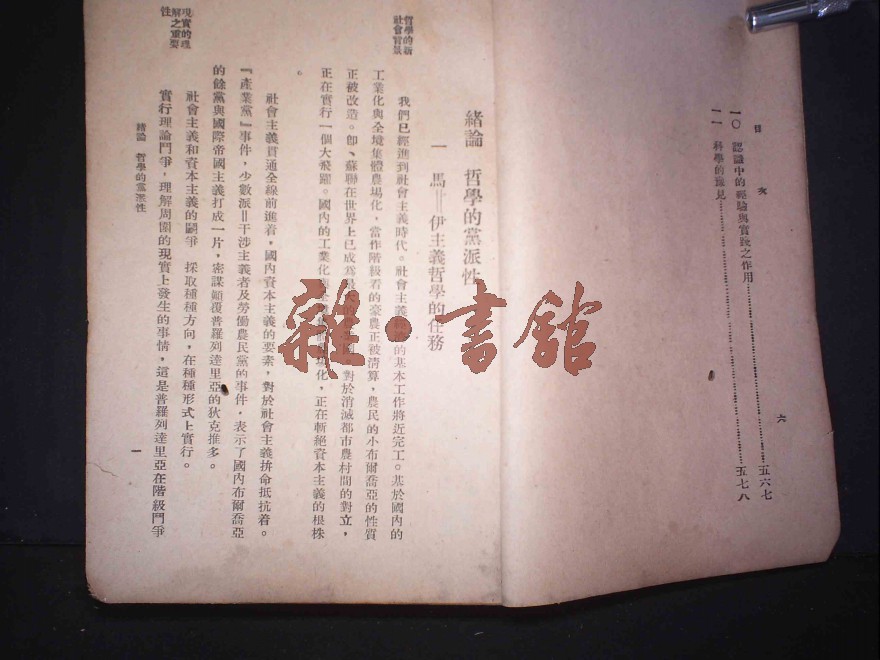 目次
一〇　認識中的經驗與實踐之作用……五六七
一一　科學的豫見……五七八
六
哲學的新社會背景
緒論　哲學的黨派性
一　馬＝伊主義哲學的任務
我們已經進到社會主義時代。社會主義的基本工作將近完工。基於國內的
工業化與全境集體農場化，當作階級看的豪農正被清算，農民的小布爾喬亞的性質
正被改造。卽、蘇聯在世界上已成爲最大的國，對於消滅都市農村間的對立，
正在實行一個大飛躍。國內的工業化與全場化，正在斬絕資本主義的根株
。
社會主義貫通全線前進着，國內資本主義的要素，對於社會主義拚命抵抗着。
『產業黨』事件，少數派＝干涉主義者及勞働農民黨的事件，表示了國內布爾喬亞
的餘黨與國際帝國主義打成一片，密謀顚覆普羅列達里亞的狄克推多。
現實的理解之重要性
社會主義和資本主義的鬭爭　採取種種方向，在種種形式上實行。
實行理論鬥爭，理解周圍的現實上發生的事情，這是普羅列達里亞在階級鬥爭
緒論　哲學的黨派性
一
雜·書館